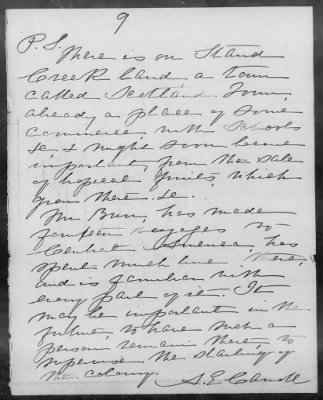 9
P.S.
There is on Stand
Creek land a town
called Scotland Town,
already a place of some
commerce with schools
&c & might soon become
important, from the sale
of tropical fruits, which
grow there &c.
Mr Burr, has made
fourteen voyages to
Central America, has
spent much time there,
and is familiar with
every part of it. It
may be important in the
future, to have such a
person remain there, to
supervise the starting of
the colony.